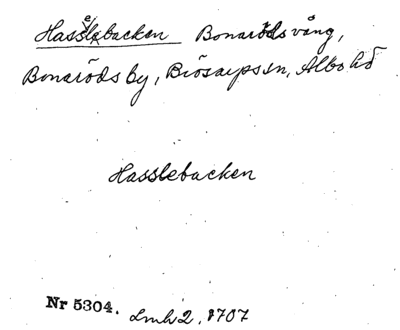 Hasslebacken Bonarödsvång,
Bonaröds by, Brösarps sn, Albo hd
Hasslebacken
Nr 5304. Lmh 2, 1707